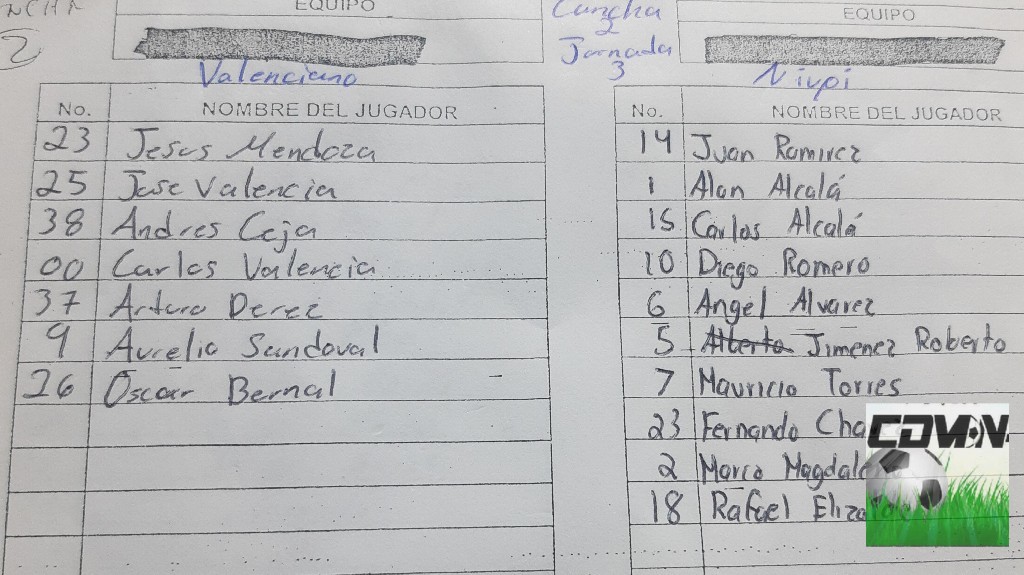 EQUIPO
Cancha
2
Jornada
3
EQUIPO
2
Valenciano
Nivpi
No. NOMBRE DEL JUGADOR
23 Jesus Mendoza
25 Jose Valencia
38 Andres Ceja
00 Carlos Valencia
37 Arturo Perez
9 Aurelio Sandoval
26 Oscar Bernal
No. NOMBRE DEL JUGADOR
14 Juan Ramirez
1 Alan Alcalá
15 Carlos Alcalá
10 Diego Romero
6 Angel Alvarez
5 Alberto Jimenez Roberto
7 Mauricio Torres
23 Fernando
2 Marco
18 Rafael